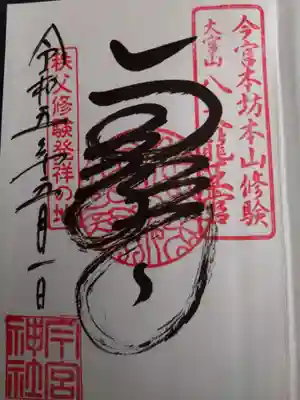 今宮本坊本山修験
大宮山 八大龍王宮
秩父修験発祥の地
令和五年五月一日
今宮
神社